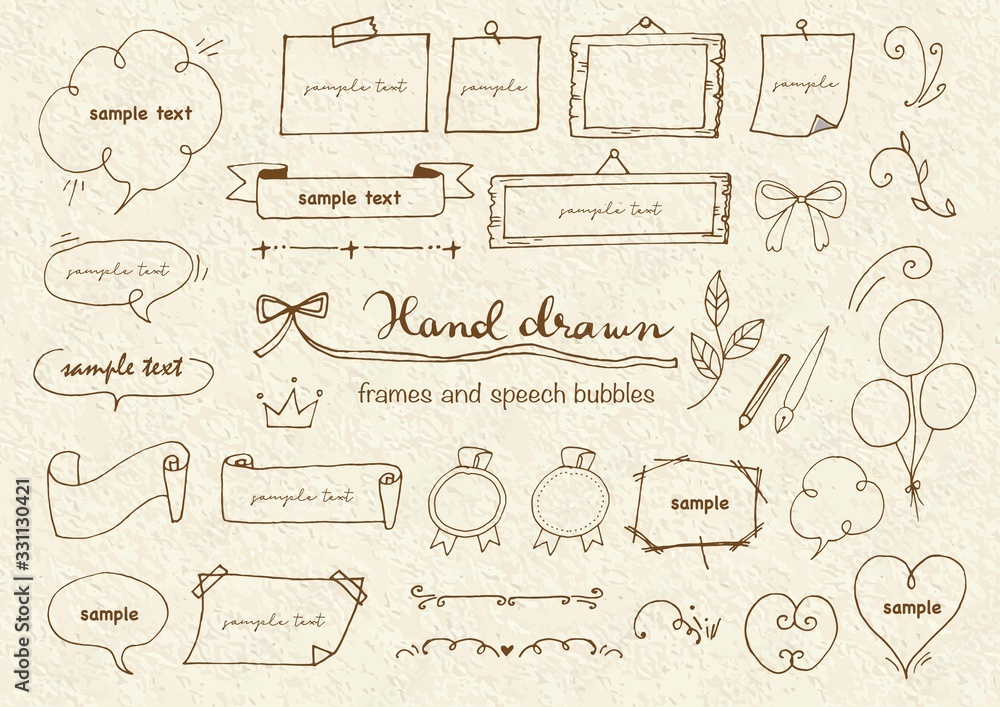 sample text
sample text
sample
sample
sample text
sample text
sample text
Hand drawn
sample text
frames and speech bubbles
sample text
sample
sample
sample text
sample
Adobe Stock | #331130421